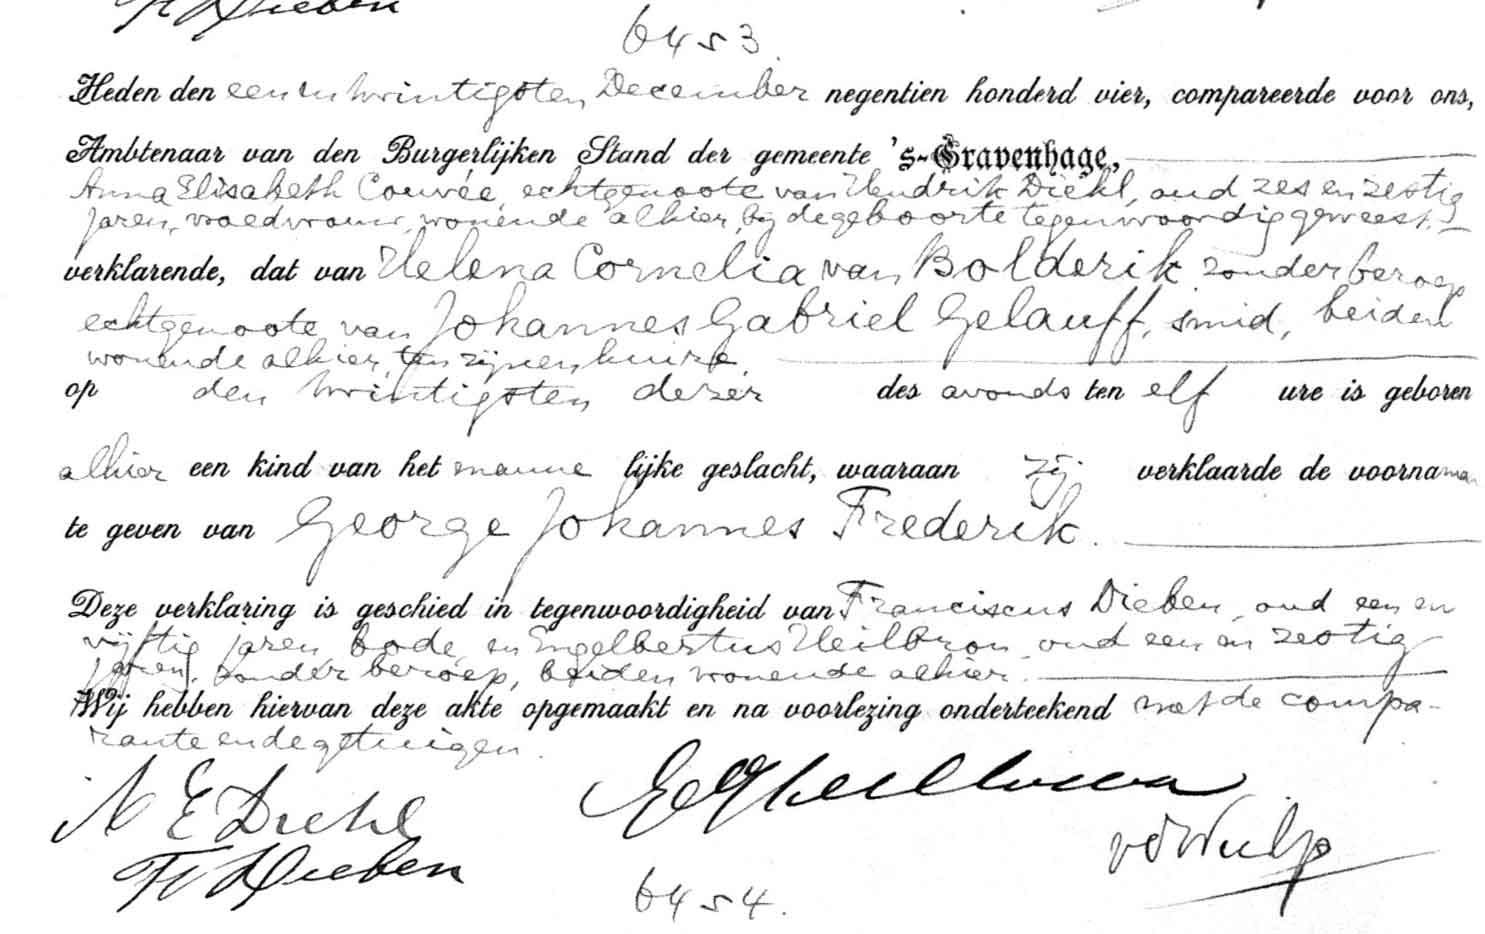 Fr Dieben
6453.
Heden den een en twintigsten December negentien honderd vier, compareerde voor ons,
Ambtenaar van den Burgerlijken Stand der gemeente 's-Gravenhage,
Anna Elisabeth Couvée, echtgenoote van Hendrik Diehl, oud zes en zestig
jaren, vroedvrouw, wonende alhier, bij de geboorte tegenwoordig geweest,
verklarende, dat van Helena Cornelia van Bolderik zonder beroep
echtgenoote van Johannes Gabriel Gelauff, smid, beiden
wonende alhier, ten zijnen huize
op den twintigsten dezer des avonds ten elf ure is geboren
alhier een kind van het manne lijke geslacht, waaraan zij verklaarde de voornamen
te geven van George Johannes Frederik.
Deze verklaring is geschied in tegenwoordigheid van Franciscus Dieben, oud een en
vijftig jaren, bode, en Engelbertus Heilbron, oud een en zestig
jaren, zonder beroep, beiden wonende alhier.
Wij hebben hiervan deze akte opgemaakt en na voorlezing onderteekend met de compa-
rante en de getuigen.
A E Diehl
vd Wulp
Fr Dieben
6454.